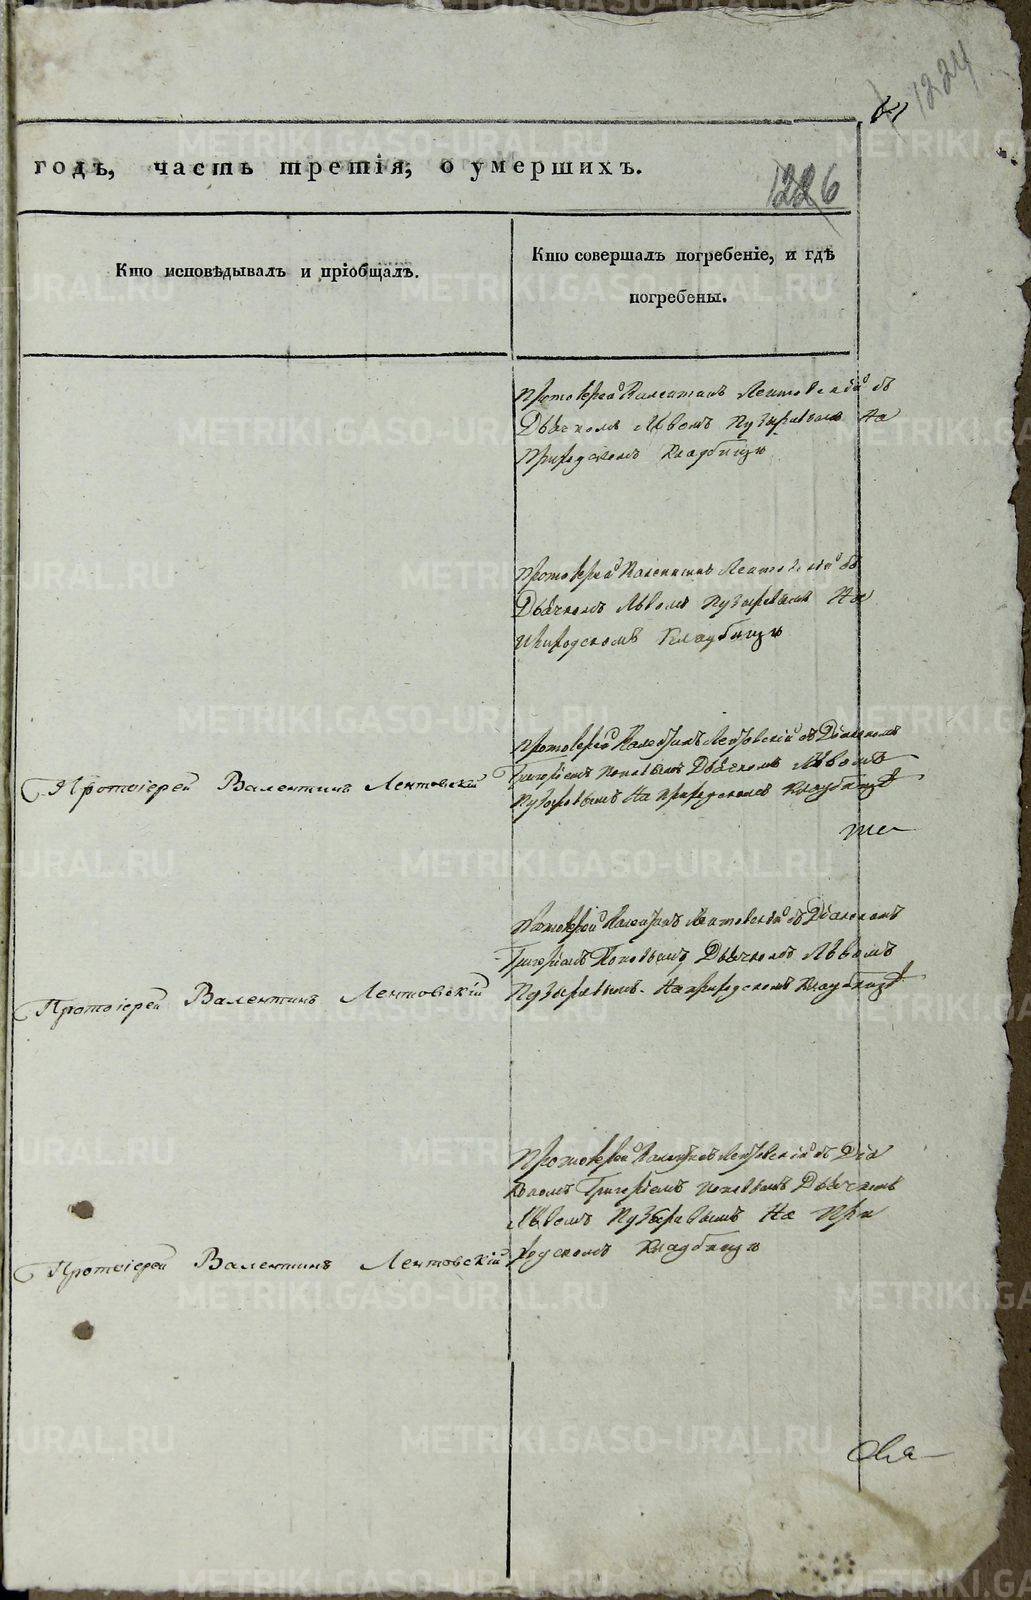 1224
годъ, часть третія, о умершихъ.
1226
Кто исповѣдывалъ и пріобщалъ.
Кто совершалъ погребеніе, и гдѣ
погребены.
Протоіерей Валентинъ Лентовскій съ
Дьячкомъ Львомъ Пузыревымъ На
Приходскомъ Кладбищѣ
Протоіерей Валентинъ Лентовскій съ
Дьячкомъ Львомъ Пузыревымъ На
Приходскомъ Кладбищѣ
Протоіерей Валентинъ Лентовскій
Протоіерей Валентинъ Лентовскій съ Діакономъ
Григоріемъ Поповымъ Дьячкомъ Львомъ
Пузыревымъ На приходскомъ Кладбищѣ
Протоіерей Валентинъ Лентовскій
Протоіерей Валентинъ Лентовскій съ Діакономъ
Григоріемъ Поповымъ Дьячкомъ Львомъ
Пузыревымъ На приходскомъ Кладбищѣ
Протоіерей Валентинъ Лентовскій
Протоіерей Валентинъ Лентовскій съ Діа
кономъ Григоріемъ Поповымъ Дьячкомъ
Львомъ Пузыревымъ На При
ходскомъ Кладбищѣ
METRIKI.GASO-URAL.RU